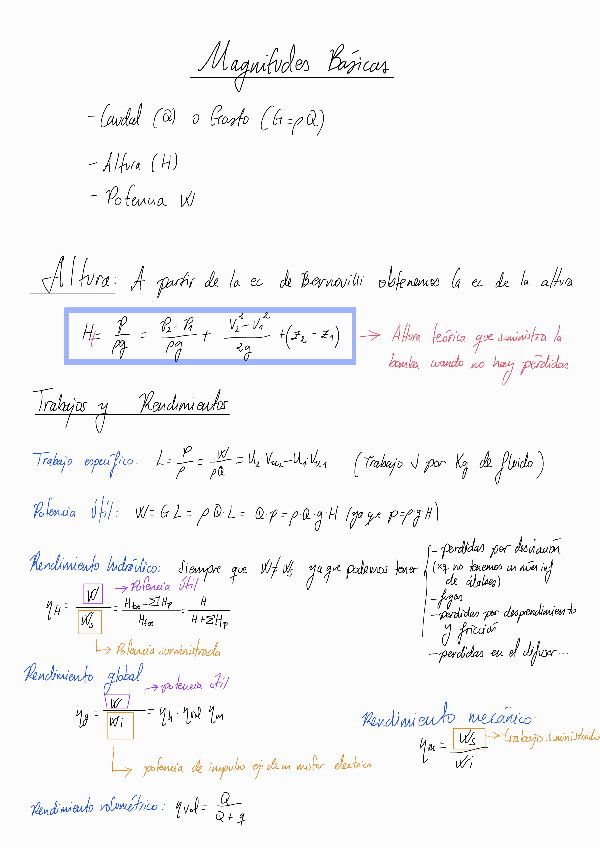 Magnitudes Básicas
- Caudal (Q) o Gasto (G=ρQ)
- Altura (H)
- Potencia W
Altura: A partir de la ec de Bernouilli obtenemos la ec de la altura
H = P/ρg = (P₂ - P₁)/ρg + (V₂² - V₁²)/2g + (z₂ - z₁) → Altura teórica que suministra la
bomba cuando no hay pérdidas
Trabajos y Rendimientos
Trabajo específico: L = P/ρ = W/ρQ = U₂ Vu₂ - U₁ Vu₁ (Trabajo ↓ por Kg de fluido)
Potencia útil: W = G L = ρ Q · L = Q · p = ρ · Q · g · H (ya que p = ρ g H)
Rendimiento hidráulico: siempre que W ≠ Ws, ya que podemos tener
- perdidas por desviación
(xq no tenemos un núm inf
de álabes)
- fugas
- perdidas por desprendimiento
y fricción
- perdidas en el difusor...
→ Potencia útil
η_H = W/Ws = (H_t∞ - ΣH_p)/H_t∞ = H/(H + ΣH_p)
↳ Potencia suministrada
Rendimiento global
→ potencia útil
η_g = W/Wi = η_h · η_vol · η_m
↳ potencia de impulso ej: de un motor electrico
Rendimiento mecánico:
η_m = Ws/Wi → trabajo suministrado
Rendimiento volumétrico: η_vol = Q/(Q + q)